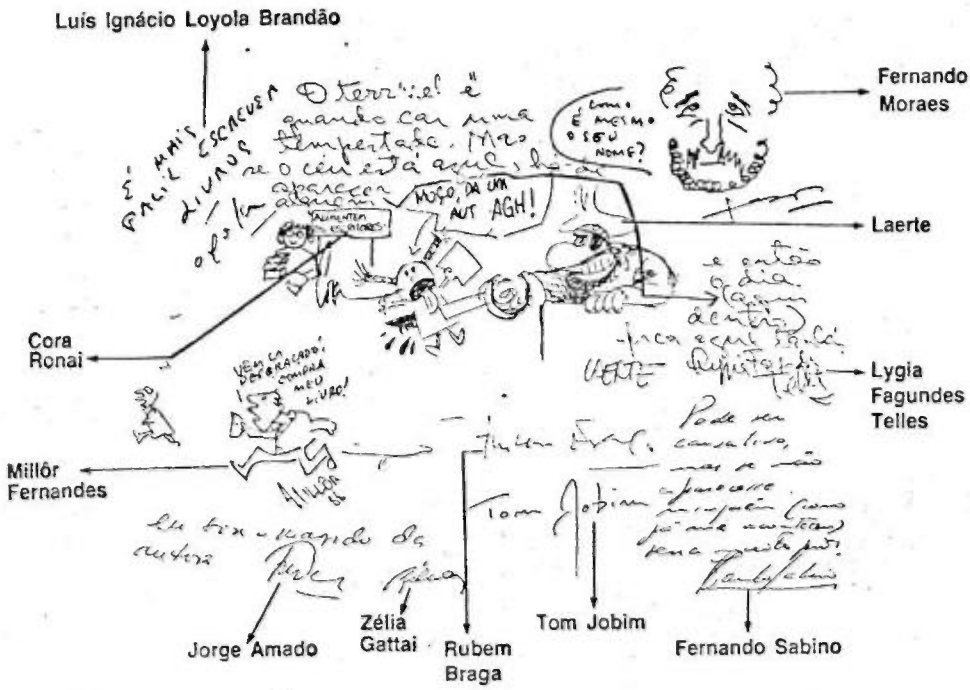 Luís Ignácio Loyola Brandão
É MAIS
FACIL ESCREVER
LIVROS
O terrível é
quando cai uma
tempestade. Mas
se o céu está azul, há de
aparecer
alguém
COMO
É MESMO
O SEU
NOME?
Fernando
Moraes
ALIMENTEM
OS ESCRITORES.
MOÇO, DÁ UM
AUT AGH!
Laerte
e então
o dia
(a um
dentro)
fica
Cora
Ronai
LAERTE
Lygia
Fagundes
Telles
VEM CÁ
DESGRAÇADO!
COMPRA
MEU
LIVRO!
Millôr
Fernandes
MILLÔR
86
Rubem Braga.
Tom Jobim
Pode ser
cansativo,
mas se não
aparecesse
ninguém (como
já me aconteceu)
seria muito pior
Eu sou o marido da
autora
Jorge Amado
Zélia
Gattai
Rubem
Braga
Tom Jobim
Fernando Sabino